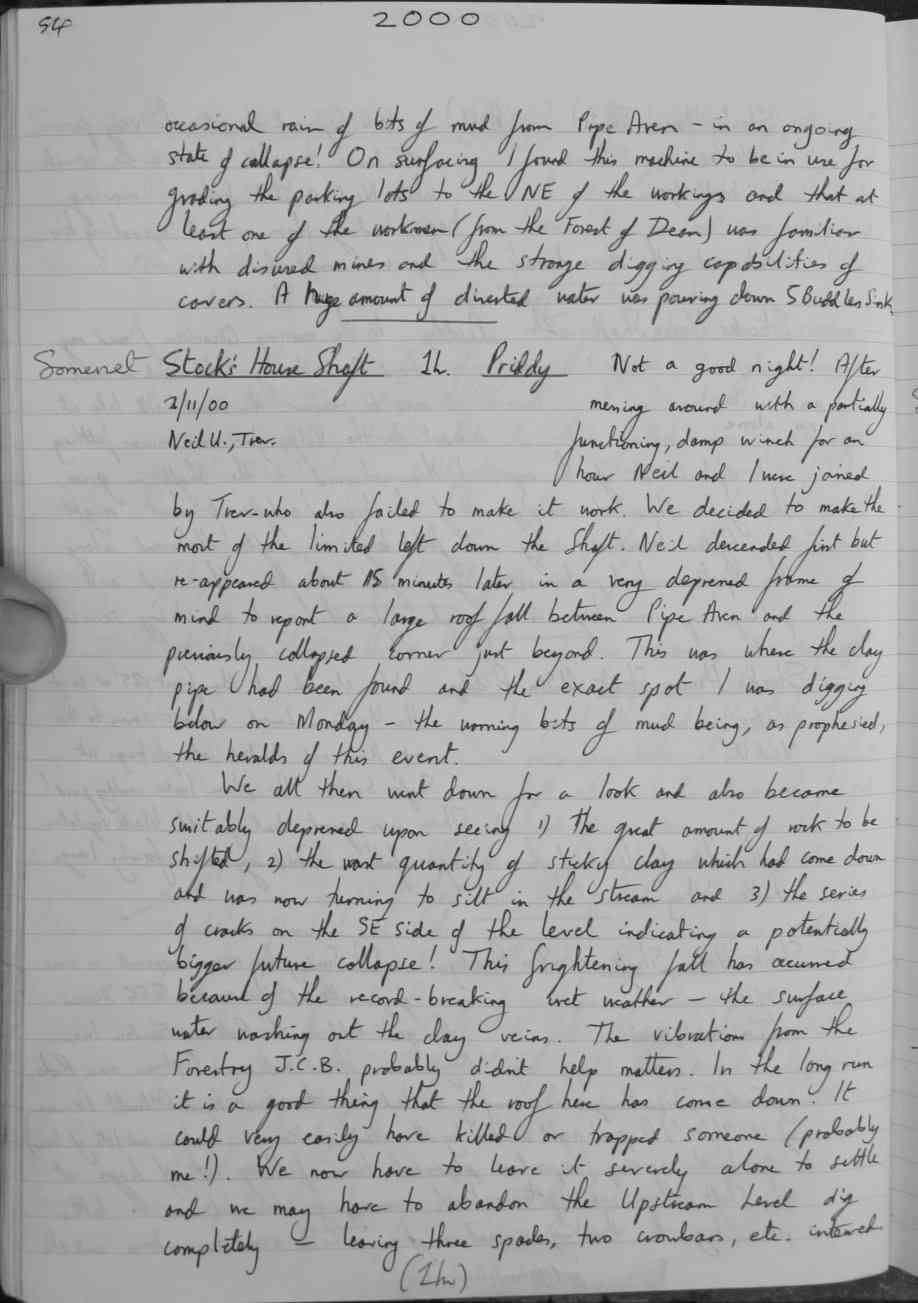 54
2000
occasional rain of bits of mud from Pipe Aven - in an ongoing
state of collapse! On surfacing I found this machine to be in use for
grading the parking lots to the NE of the workings and that at
least one of the workmen (from the Forest of Dean) was familiar
with disused mines and the strange digging capabilities of
cavers. A huge amount of diverted water was pouring down 5 Buddles Sink.
Somerset Stock's House Shaft 1h. Priddy Not a good night! After
2/11/00 messing around with a partially
Neil U., Trev. functioning, damp winch for an
hour Neil and I were joined
by Trev - who also failed to make it work. We decided to make the
most of the limited left down the Shaft. Neil descended first but
re-appeared about 15 minutes later in a very depressed frame of
mind to report a large roof fall between Pipe Aven and the
previously collapsed corner just beyond. This was where the clay
pipe had been found and the exact spot I was digging
below on Monday - the warning bits of mud being, as prophesied,
the heralds of this event.
We all then went down for a look and also became
suitably depressed upon seeing 1) the great amount of rock to be
shifted, 2) the vast quantity of sticky clay which had come down
and was now turning to silt in the stream and 3) the series
of cracks on the SE side of the level indicating a potentially
bigger future collapse! This frightening fall has occurred
because of the record-breaking wet weather - the surface
water washing out the clay veins. The vibration from the
Forestry J.C.B. probably didn't help matters. In the long run
it is a good thing that the roof here has come down. It
could very easily have killed or trapped someone (probably
me!). We now have to leave it severely alone to settle
and we may have to abandon the Upstream Level dig
completely - leaving three spades, two crowbars, etc. interred
(1hr)